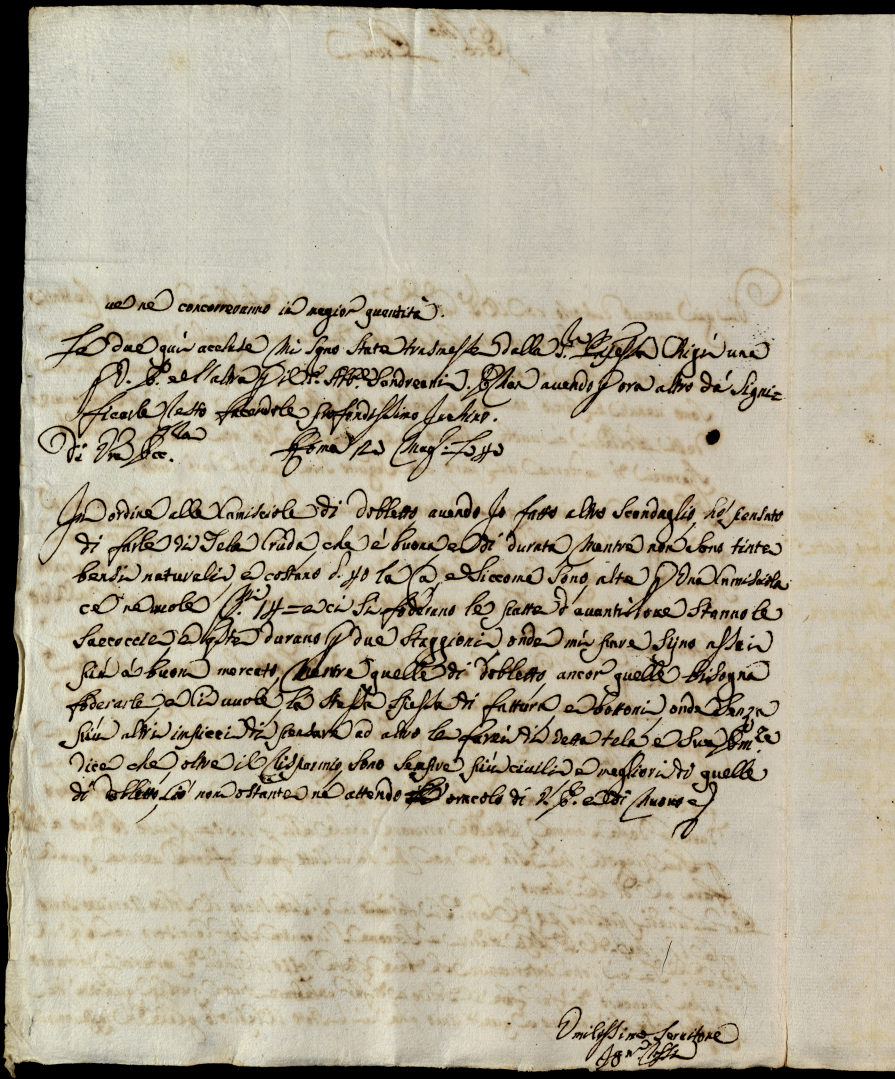 ve ne concorreranno in magior quantità.
Le due qui accluse mi sono state trasmesse dalla Sra Pñpessa Chigi una
p V. E. e l'altra p il Sr Abbe Sondreani. Non avendo p ora altro da signi=
ficarle resto facendole profondissimo Inchino.
Di Vra Ecc.lla Roma 21 Magi: 1740
In ordine alle Camisciole di dobletto avendo Io fatto altro scandaglio, hò pensato
di farle di Tela Cruda, che è buona e di durata, mentre non sono tinte
bensi naturali, e costano b. 40 la Ca, e siccome sono alte p una Camisciola
ce ne vuole pmi 14 = e ci si foderano le parte d'avanti dove stanno le
saccoccie, e qste durano p due staggioni onde mi pare sijno assai
più a buon mercato, mentre quelle di dobletto ancor quelle bisogna
foderarle e ci vuole la stessa spesa di fattura e bottoni, onde senza
più altri impicci di pensare ad altro le farei di detta tela e Sua Emza
dice che oltre il risparmio sono sempre più civili e megliori di quelle
di dobletto, ciò non ostante ne attendo oracolo di V. E. e di nuovo e
Umilissimo Servitore